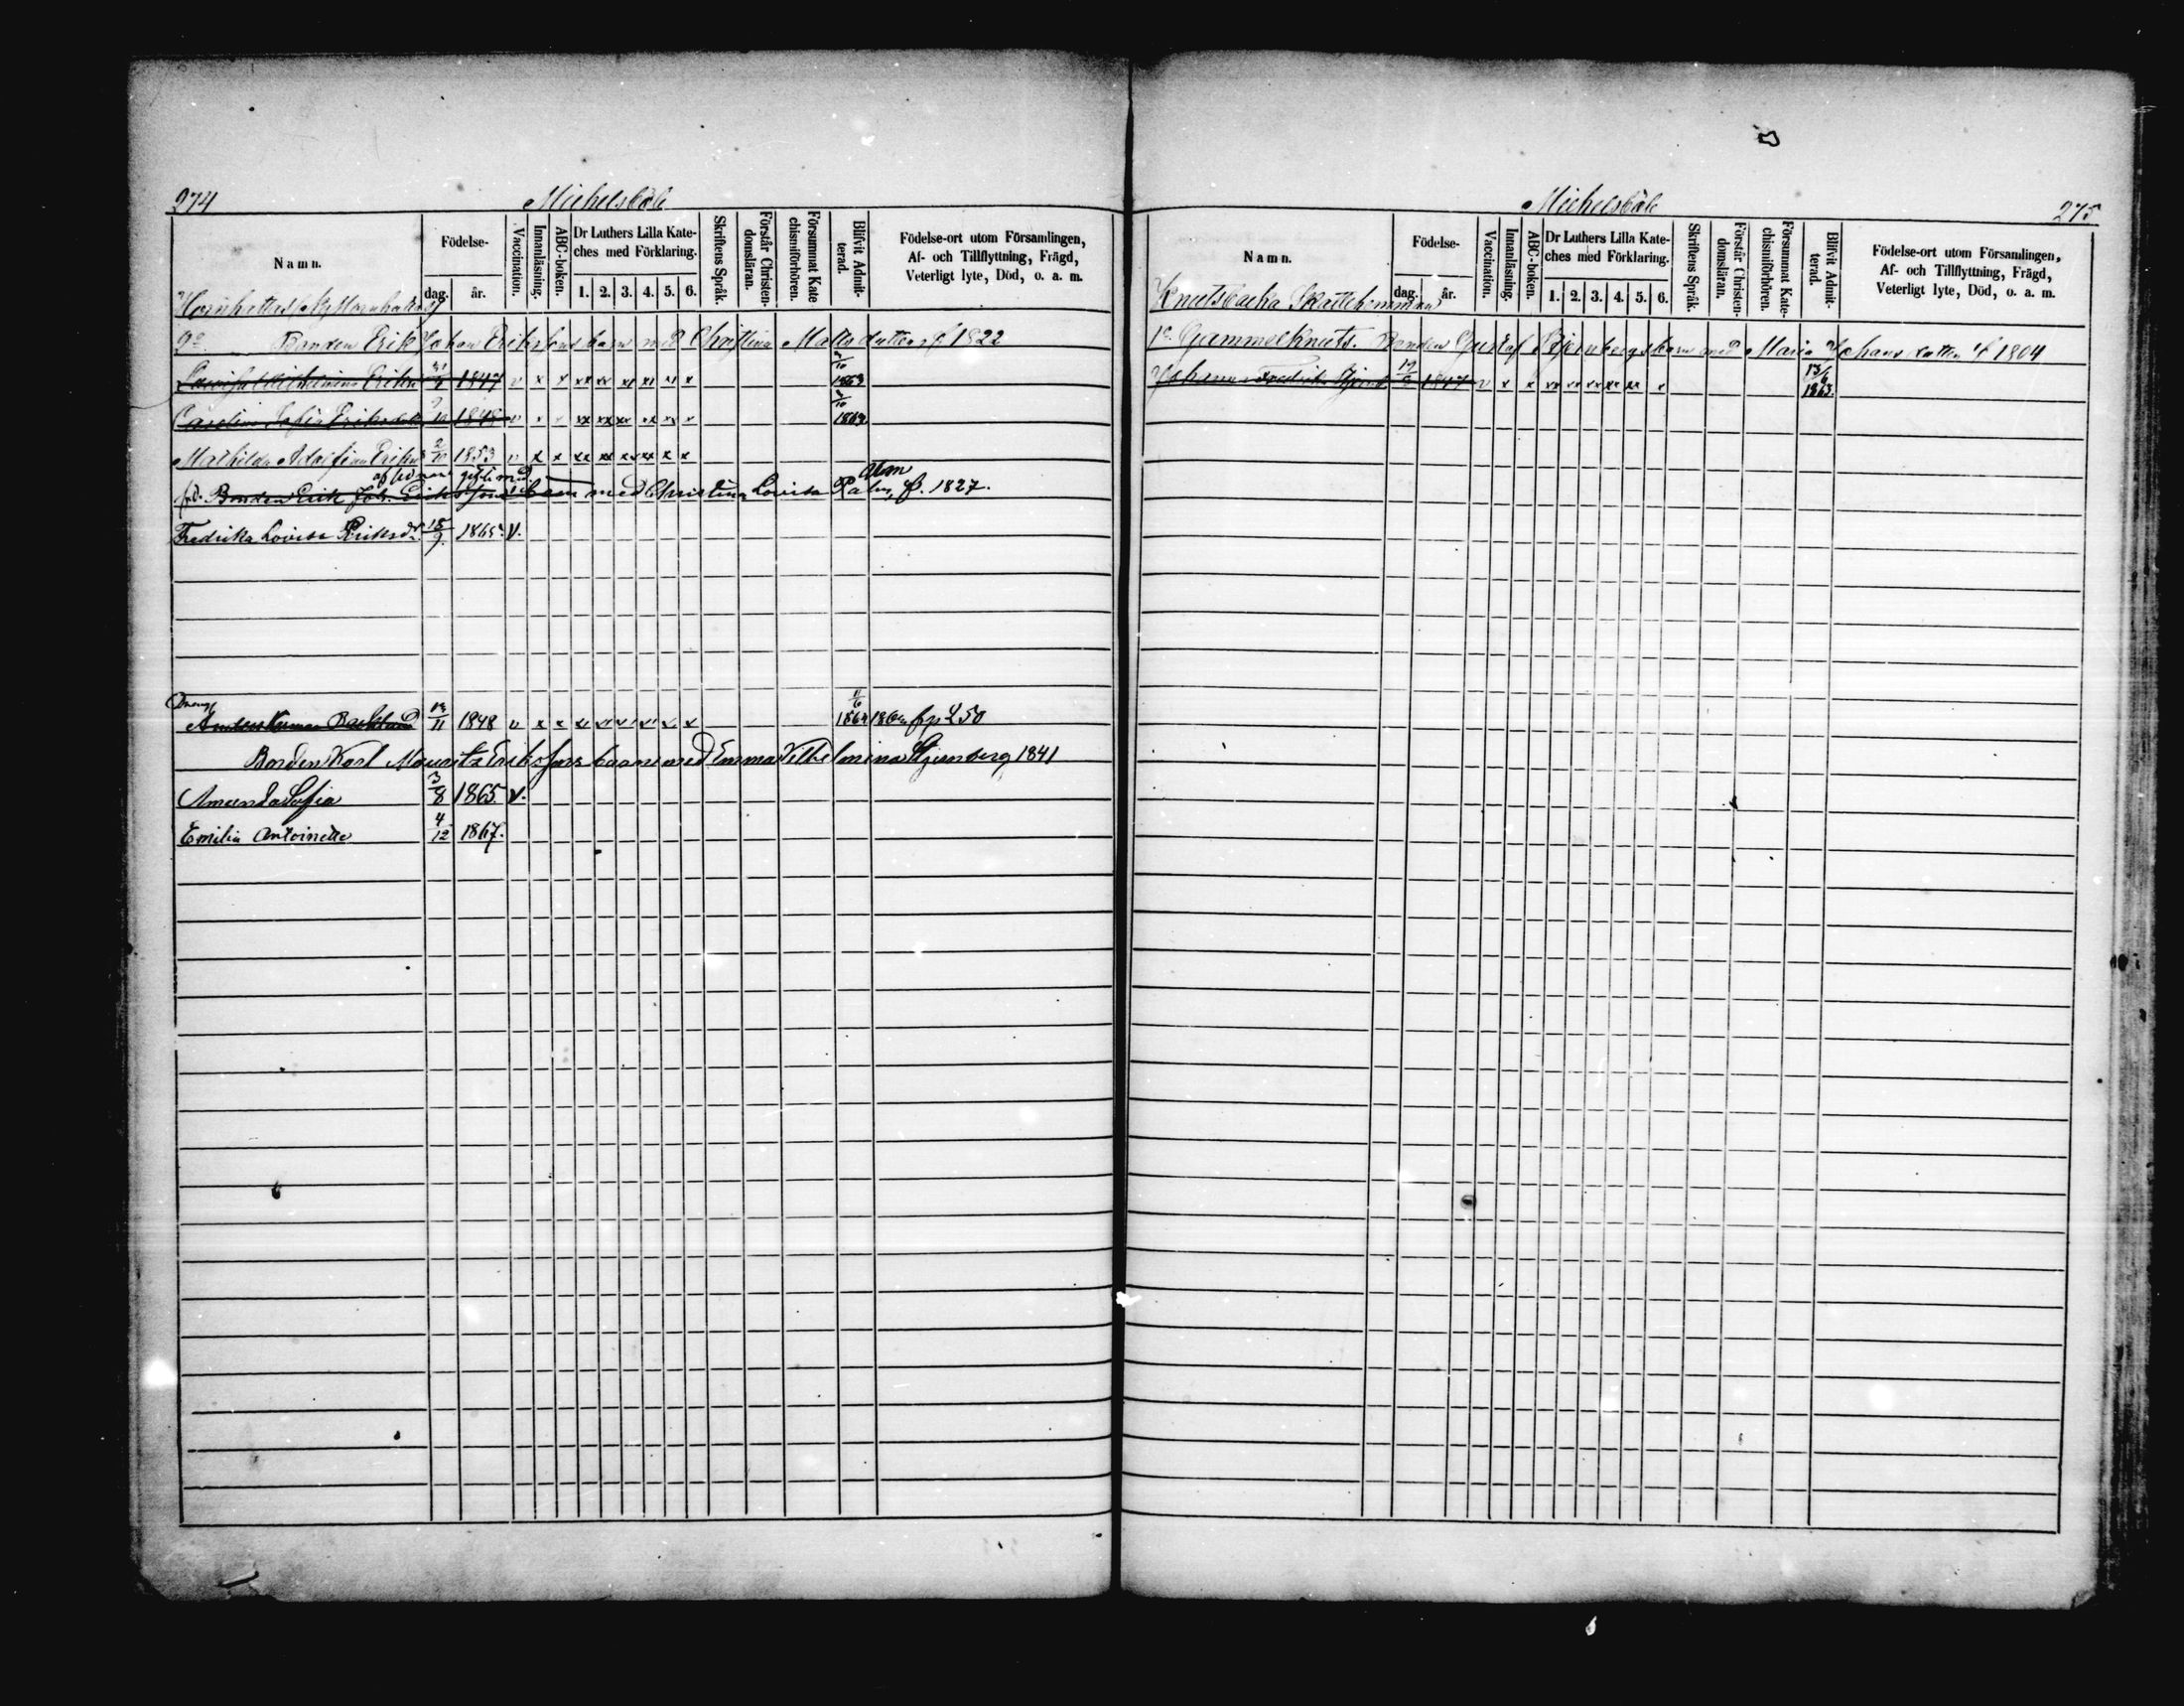 274 Michelsböle
Namn. Födelse- dag. år. Vaccination. Innanläsning. ABC-boken. Dr Luthers Lilla Kateches med Förklaring. 1. 2. 3. 4. 5. 6. Skriftens Språk. Förstår Christendomsläran. Försummat Kate chismiförhören. Blifvit Admitterad. Födelse-ort utom Församlingen, Af- och Tillflyttning, Frägd, Veterligt lyte, Död, o. a. m.
Bonden Erik Johan Erikssons barn med Christina Mattsdotter f 1822
Lovisa Wilhelmina Eriksd 1847 v x x xx xx xx xx xx x 1863
Carolina Sofia Eriksdotter 1848 v x x xx xx xx xx xx x
Mathilda Adolfina Eriksd 2/10 1853 v x x xx xx xx xx x x
Bonden Erik Joh. Erikssons barn med Christina Lovisa Palm, f. 1827.
Fredrika Lovisa Eriksdr 18/9 1865. v.
Dreng
Anders Herman Backlund 1848 v x x x
Bonden Karl Mauritz Erikssons barn med Emma Vilhelmina Stjernberg 1841
Amanda Sofia 3/8 1865. v.
Emilia Antoinette 4/12 1867.
Michelsböle 275
Namn. Födelse- dag. år. Vaccination. Innanläsning. ABC-boken. Dr Luthers Lilla Kateches med Förklaring. 1. 2. 3. 4. 5. 6. Skriftens Språk. Förstår Christendomsläran. Försummat Katechismiförhören. Blifvit Admitterad. Födelse-ort utom Församlingen, Af- och Tillflyttning, Frägd, Veterligt lyte, Död, o. a. m.
Knutsbacka Skattehemman
1o Gammelknuts. Bonden Gustaf Stjernbergs barn med Maria Johansdotter f 1804
Johan Fredrik Stjernb 1847 v x x xx xx xx xx xx x 13/6 1863.